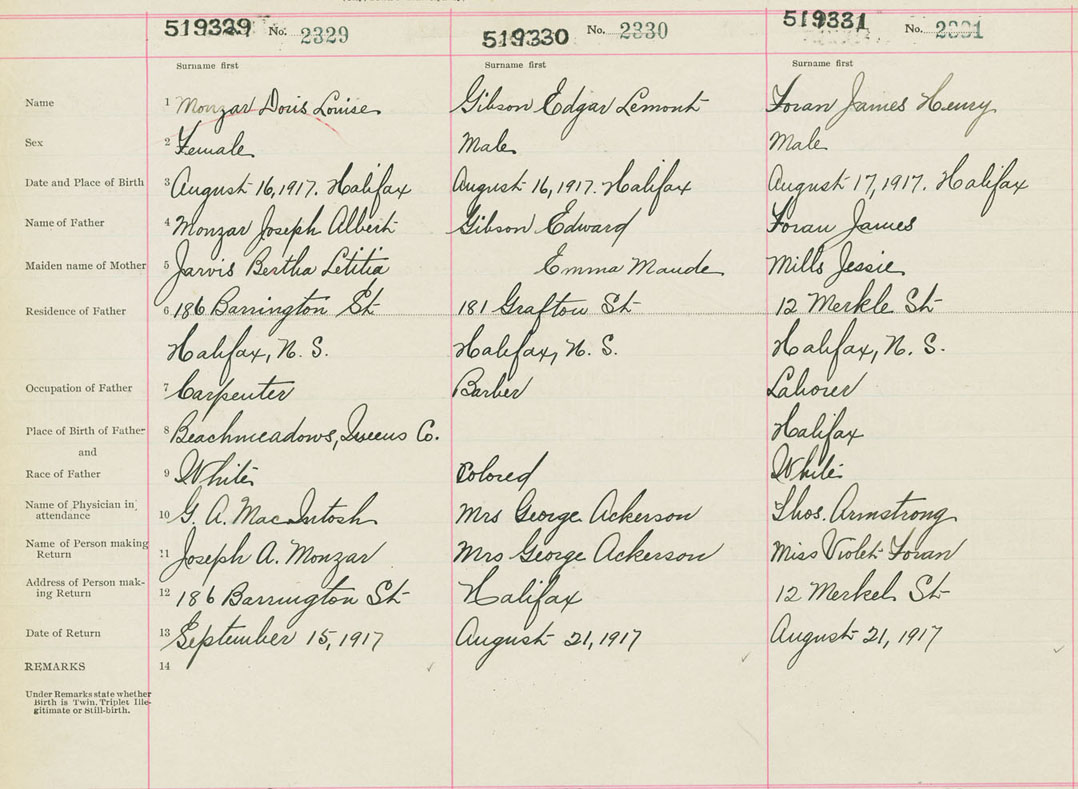 519329 No. 2329 519330 No. 2330 519331 No. 2331
Surname first Surname first Surname first
Name 1 Monzar Doris Louise Gibson Edgar Lemont Foran James Henry
Sex 2 Female Male Male
Date and Place of Birth 3 August 16, 1917. Halifax August 16, 1917. Halifax August 17, 1917. Halifax
Name of Father 4 Monzar Joseph Albert Gibson Edward Foran James
Maiden name of Mother 5 Jarvis Bertha Letitia Emma Maude Mills Jessie
Residence of Father 6 186 Barrington St 181 Grafton St 12 Merkle St
Halifax, N. S. Halifax, N. S. Halifax, N. S.
Occupation of Father 7 Carpenter Barber Laborer
Place of Birth of Father 8 Beachmeadows, Queens Co. Halifax
and
Race of Father 9 White Colored White
Name of Physician in
attendance 10 G. A. MacIntosh Mrs George Ackerson Thos. Armstrong
Name of Person making
Return 11 Joseph A. Monzar Mrs George Ackerson Miss Violet Foran
Address of Person mak-
ing Return 12 186 Barrington St Halifax 12 Merkel St
Date of Return 13 September 15, 1917 August 21, 1917 August 21, 1917
REMARKS 14
Under Remarks state whether
Birth is Twin. Triplet Ille-
gitimate or Still-birth.